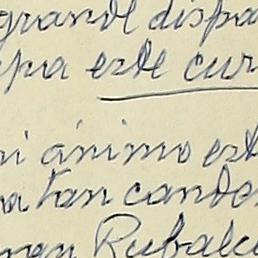 grande dispa
epa este cur
ni ánimo est
a tan cande
men Rubalc